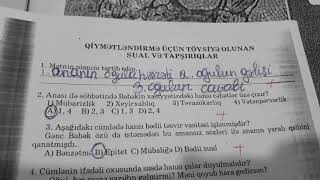 QİYMƏTLƏNDİRMƏ ÜÇÜN TÖVSİYƏ OLUNAN
SUAL VƏ TAPŞIRIQLAR
1. Mətnin planını tərtib edin.
1. ananın oğula 2. oğulun gəlişi
3. oğulun cavabı
2. Anası ilə söhbətində Babəkin xasiyyətindəki hansı cəhətlər üzə çıxır?
1) Mübarizlik 2) Xeyirxahlıq 3) Təvazökarlıq 4) Vətənpərvərlik
A) 1, 4 B) 2, 3 C) 1, 3 D) 2, 4
3. Aşağıdakı cümlədə hansı bədii təsvir vasitəsi işlənmişdir?
Gənc Babək özü də istəmədən bu amansız sözləri ilə ananın yaralı qəlbini
qanatmışdı.
A) Bənzətmə B) Epitet C) Mübaliğə D) Bədii sual
4. Cümlənin ifadəli oxusunda səsdə hansı çalar duyulmalıdır?